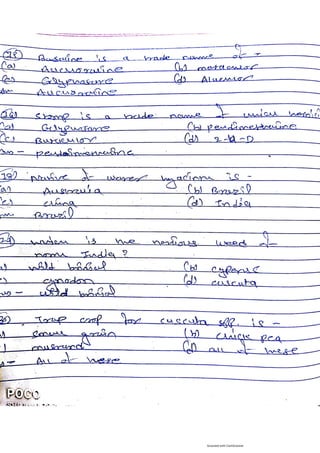 (25) Basaline is a trade name of -
(a) Fluchoraline (b) metachlor
(c) Glyphosate (d) Alachlor
Fluchoraline
(26) Stomp is a trade name of which
(a) Glyphosate (b) pendimethaline
(c) Butachlor (d) 2-4-D
pendimenthaline
Native of water hyacinth is -
(a) Australia (b) Brazil
(c) China (d) India
Brazil
which is the noxious weed of
north India?
wild brinjal (b) cyperus
cynodon (d) cuscuta
wild brinjal
Trap crop for cuscuta spp. is -
grain (b) chick pea
mustard (d) all of these
All of these
POCO
Scanned with CamScanner